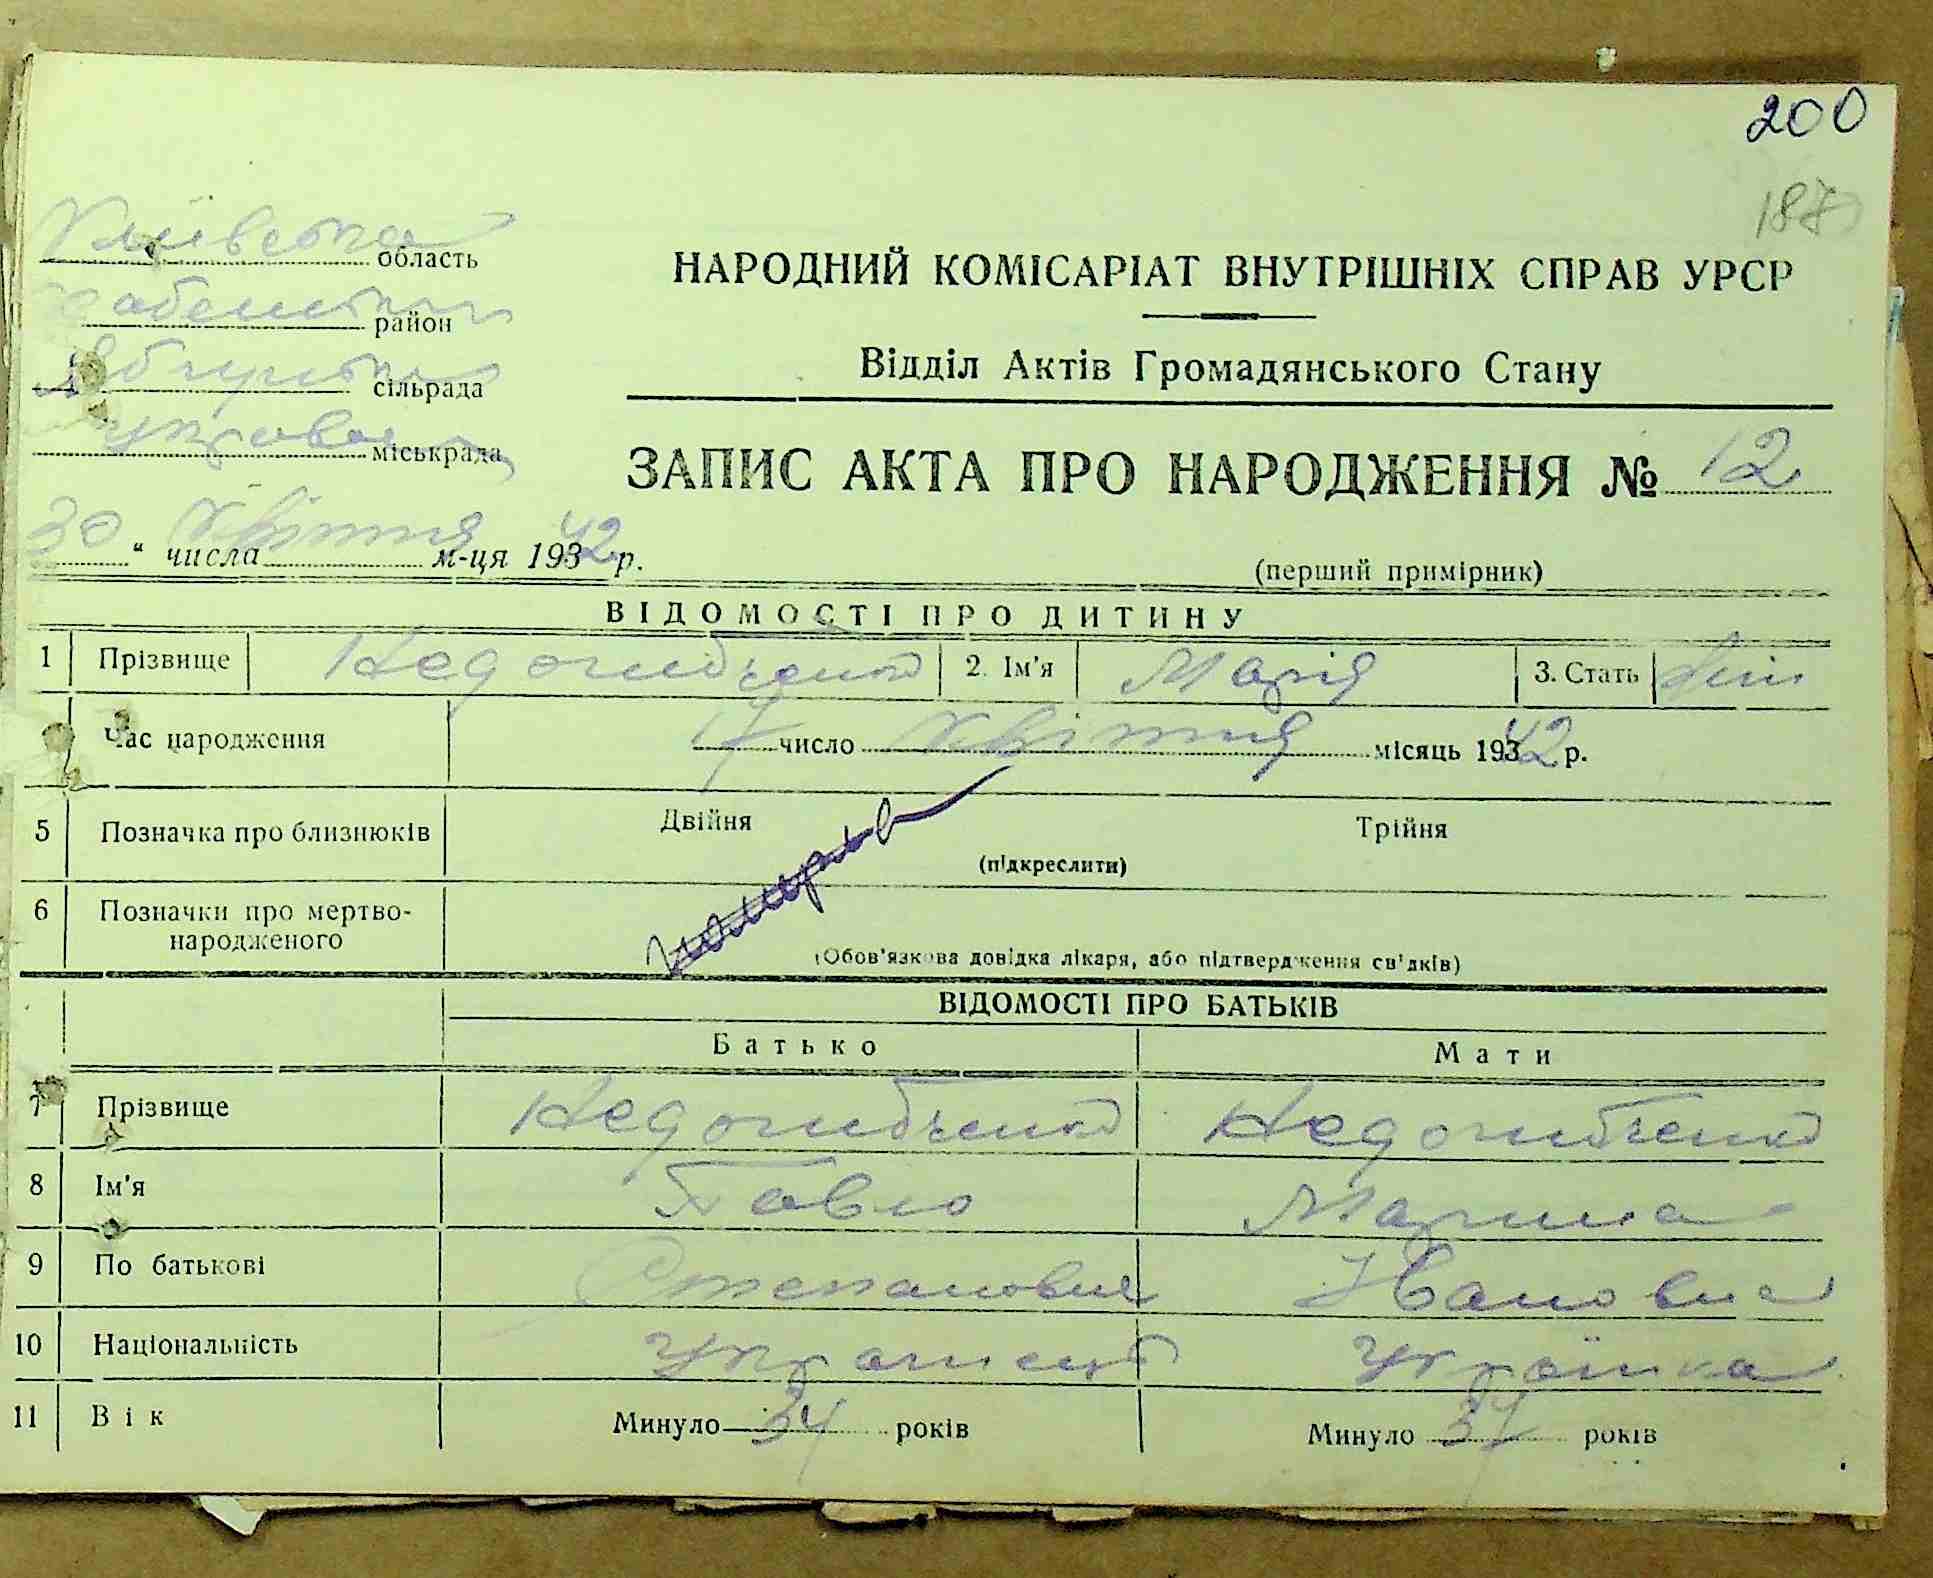 200
187
Київська область
район
сільрада
міськрада
НАРОДНИЙ КОМІСАРІАТ ВНУТРІШНІХ СПРАВ УРСР
Відділ Актів Громадянського Стану
ЗАПИС АКТА ПРО НАРОДЖЕННЯ № 12
30 " числа Квітня м-ця 1942 р.
(перший примірник)
ВІДОМОСТІ ПРО ДИТИНУ
1 Прізвище Недогибченко 2. Ім'я Марія 3. Стать
Час народження 17 число Квітня місяць 1942 р.
5 Позначка про близнюків Двійня Трійня
(підкреслити)
6 Позначки про мертво-
народженого
(Обов'язкова довідка лікаря, або підтвердження свідків)
ВІДОМОСТІ ПРО БАТЬКІВ
Батько Мати
7 Прізвище Недогибченко Недогибченко
8 Ім'я Павло Марина
9 По батькові Степанович Івановна
10 Національність Українець Українка
11 Вік Минуло 34 років Минуло 34 років